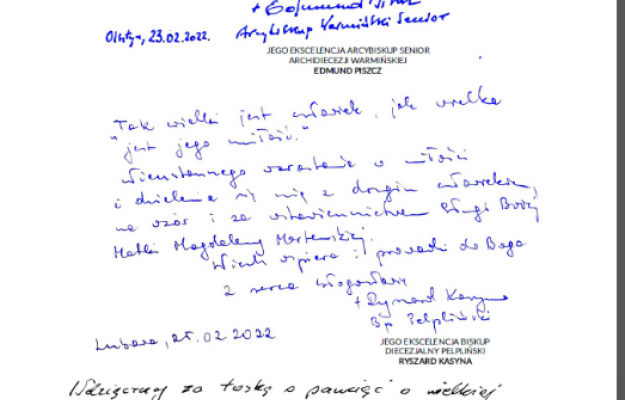 + Edmund Piszcz
Olsztyn, 23.02.2022. Arcybiskup Warmiński Senior
JEGO EKSCELENCJA ARCYBISKUP SENIOR
ARCHIDIECEZJI WARMIŃSKIEJ
EDMUND PISZCZ
"Tak wielki jest człowiek, jak wielka
jest jego miłość."
Nieustannego wzrastania w miłości
i dzielenia się nią z drugim człowiekiem,
na wzór i za wstawiennictwem Sługi Bożej
Matki Magdaleny Mortęskiej.
Niech wspiera i prowadzi do Boga
Z serca błogosławię
+ Ryszard Kasyna
Bp Pelpliński
25.02.2022
JEGO EKSCELENCJA BISKUP
DIECEZJALNY PELPLIŃSKI
RYSZARD KASYNA
Wdzięczny za troskę o pamięć o wielkiej